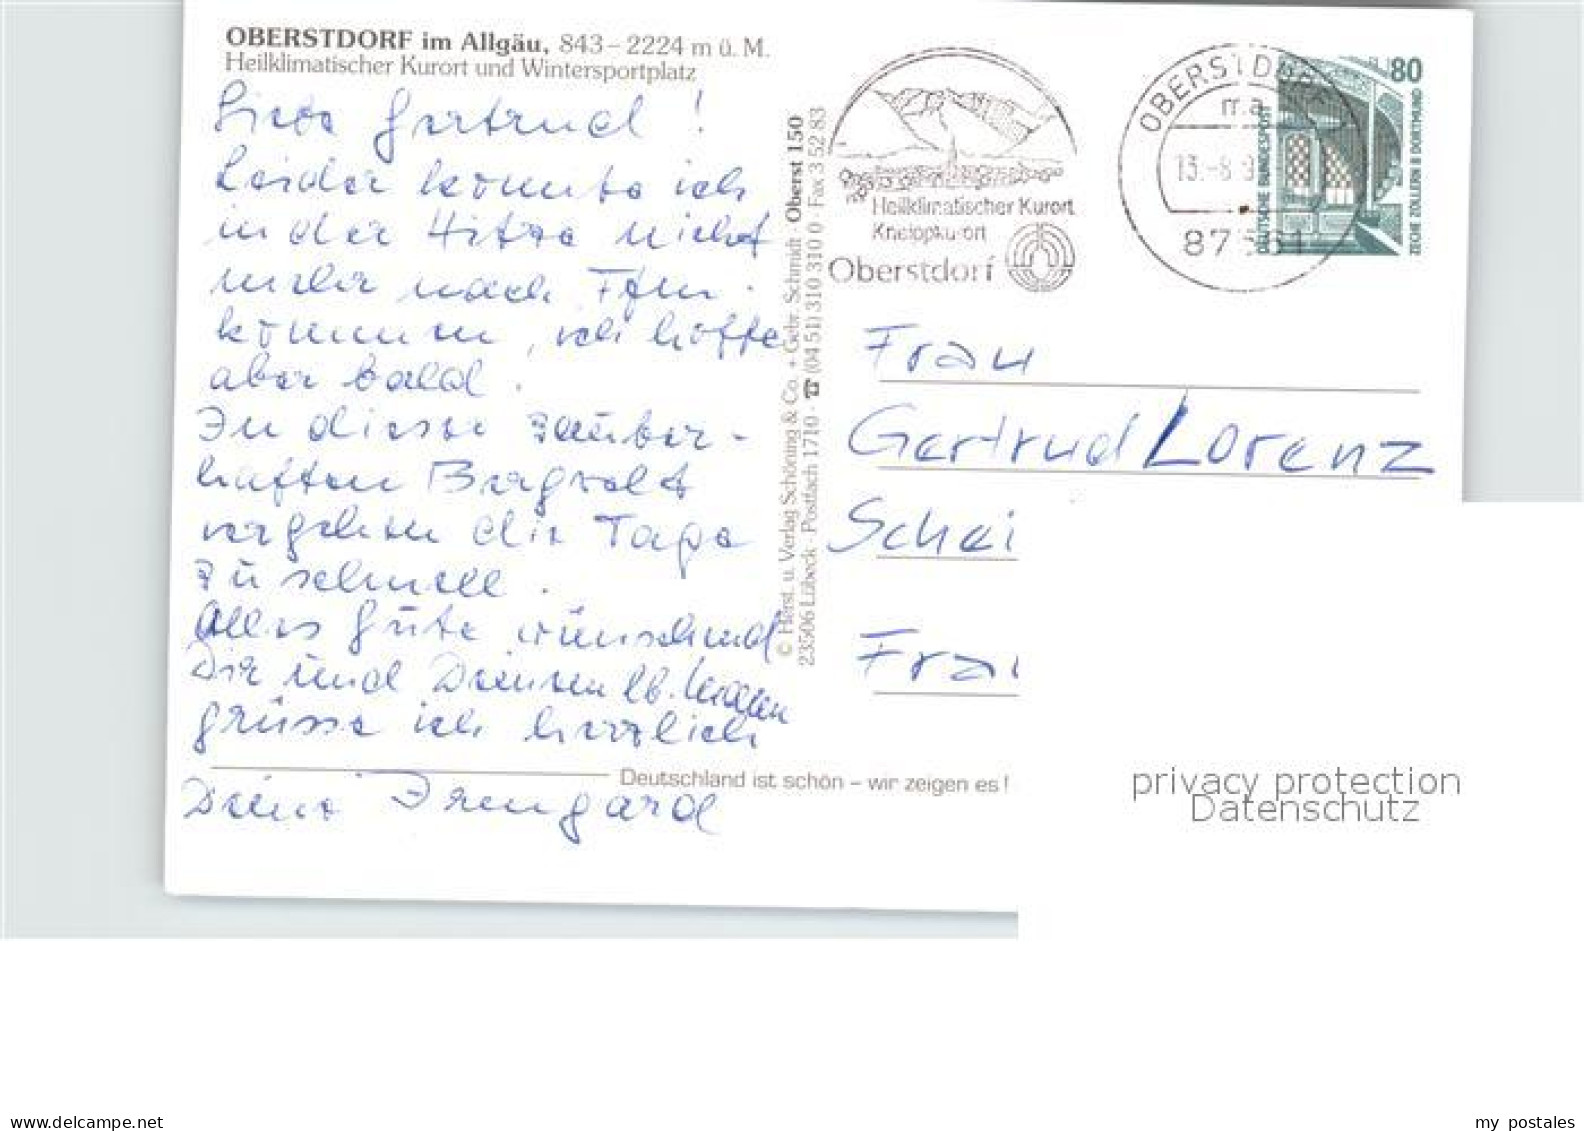 OBERSTDORF im Allgäu, 843–2224 m ü. M.
Heilklimatischer Kurort und Wintersportplatz
Liebe Gertrud !
Leider konnte ich
in der Hitze nicht
mehr nach Ffm.
kommen, ich hoffe
aber bald.
In dieser zauber-
haften Bergwelt
vergehen die Tage
zu schnell.
Alles Gute wünschend
Dir und Deinen lb.
grüsse ich herzlich
Deine Irmgard
Deutschland ist schön – wir zeigen es!
© Herst. u. Verlag Schöning & Co. + Gebr. Schmidt · Oberst 150
23506 Lübeck · Postfach 1710 · ☎ (04 51) 310 310 0 · Fax 3 52 83
Heilklimatischer Kurort
Kneippkurort
Oberstdorf
OBERSTDORF
ma
13.-8.9
87561
80
DEUTSCHE BUNDESPOST
ZECHE ZOLLERN II DORTMUND
Frau
Gertrud Lorenz
Schei
Fra
privacy protection
Datenschutz
www.delcampe.net
my postales